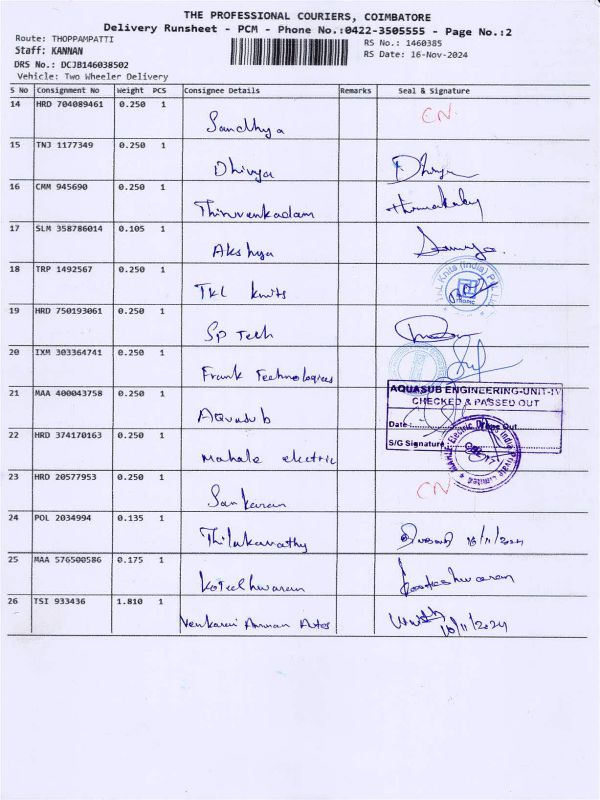 THE PROFESSIONAL COURIERS, COIMBATORE
Delivery Runsheet - PCM - Phone No.:0422-3505555 - Page No.:2
Route: THOPPAMPATTI
RS No.: 1460385
Staff: KANNAN
RS Date: 16-Nov-2024
DRS No.: DCJB146038502
Vehicle: Two Wheeler Delivery
S No Consignment No Weight PCS Consignee Details Remarks Seal & Signature
14 HRD 704089461 0.250 1 Sandhya CN.
15 TNJ 1177349 0.250 1 Dhivya Dhivya
16 CMM 945690 0.250 1 Thiruvenkadam
17 SLM 358786014 0.105 1 Akshya
18 TRP 1492567 0.250 1 TKL knits
19 HRD 750193061 0.250 1 Sp Tech
20 IXM 303364741 0.250 1 Frank Technologies
21 MAA 400043758 0.250 1 Aquasub
AQUASUB ENGINEERING-UNIT-IV
CHECKED & PASSED OUT
Date: Out
S/G Signature
22 HRD 374170163 0.250 1 Mahale electric
23 HRD 20577953 0.250 1 Sankaran CN
24 POL 2034994 0.135 1 Thilakavathy 16/11/2024
25 MAA 576500586 0.175 1 Koteeshwaran Kooteshwaran
26 TSI 933436 1.810 1 Amman Autos 16/11/2024